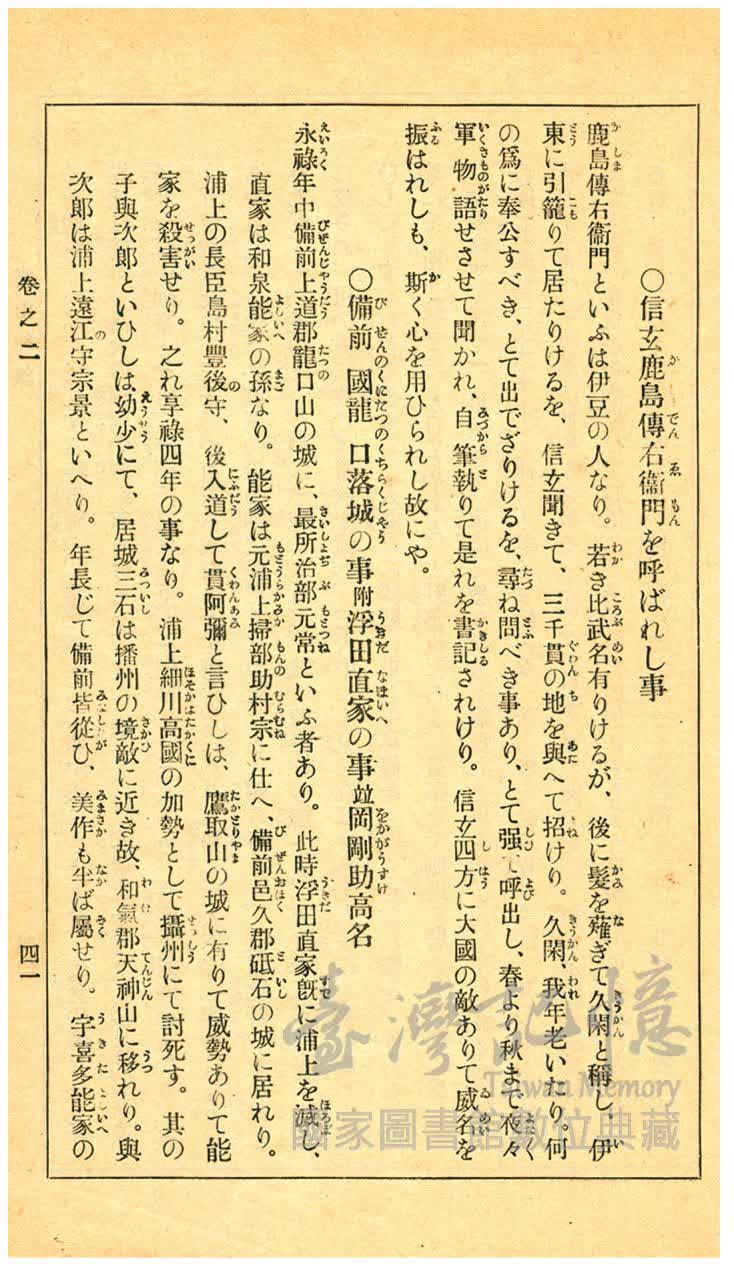 ○信玄鹿島傳右衞門を呼ばれし事
鹿島傳右衞門といふは伊豆の人なり。若き比武名有りけるが、後に髮を薙ぎて久閑と稱し、伊
東に引籠りて居たりけるを、信玄聞きて、三千貫の地を與へて招けり。久閑、我年老いたり。何
の爲に奉公すべき、とて出でざりけるを、尋ね問べき事あり、とて强て呼出し、春より秋まで夜々
軍物語せさせて聞かれ、自筆執りて是れを書記されけり。信玄四方に大國の敵ありて威名を
振はれしも、斯く心を用ひられし故にや。
○備前國龍口落城の事附浮田直家の事竝岡剛助高名
永祿年中備前上道郡龍口山の城に、最所治部元常といふ者あり。此時浮田直家旣に浦上を滅し、
直家は和泉能家の孫なり。能家は元浦上掃部助村宗に仕へ、備前邑久郡砥石の城に居れり。
浦上の長臣島村豐後守、後入道して貫阿彌と言ひしは、鷹取山の城に有りて威勢ありて能
家を殺害せり。之れ享祿四年の事なり。浦上細川高國の加勢として攝州にて討死す。其の
子與次郎といひしは幼少にて、居城三石は播州の境敵に近き故、和氣郡天神山に移れり。與
次郎は浦上遠江守宗景といへり。年長じて備前皆從ひ、美作も半ば屬せり。宇喜多能家の
卷之二
四一
臺灣記憶
Taiwan Memory
國家圖書館數位典藏